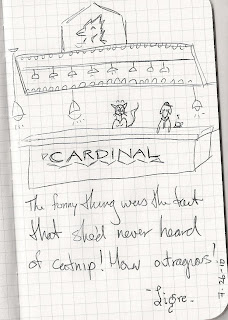 CARDINAL
The funny thing was the fact
that she'd never heard
of catnip! How outrageous!
-Ligre.
7-26-10